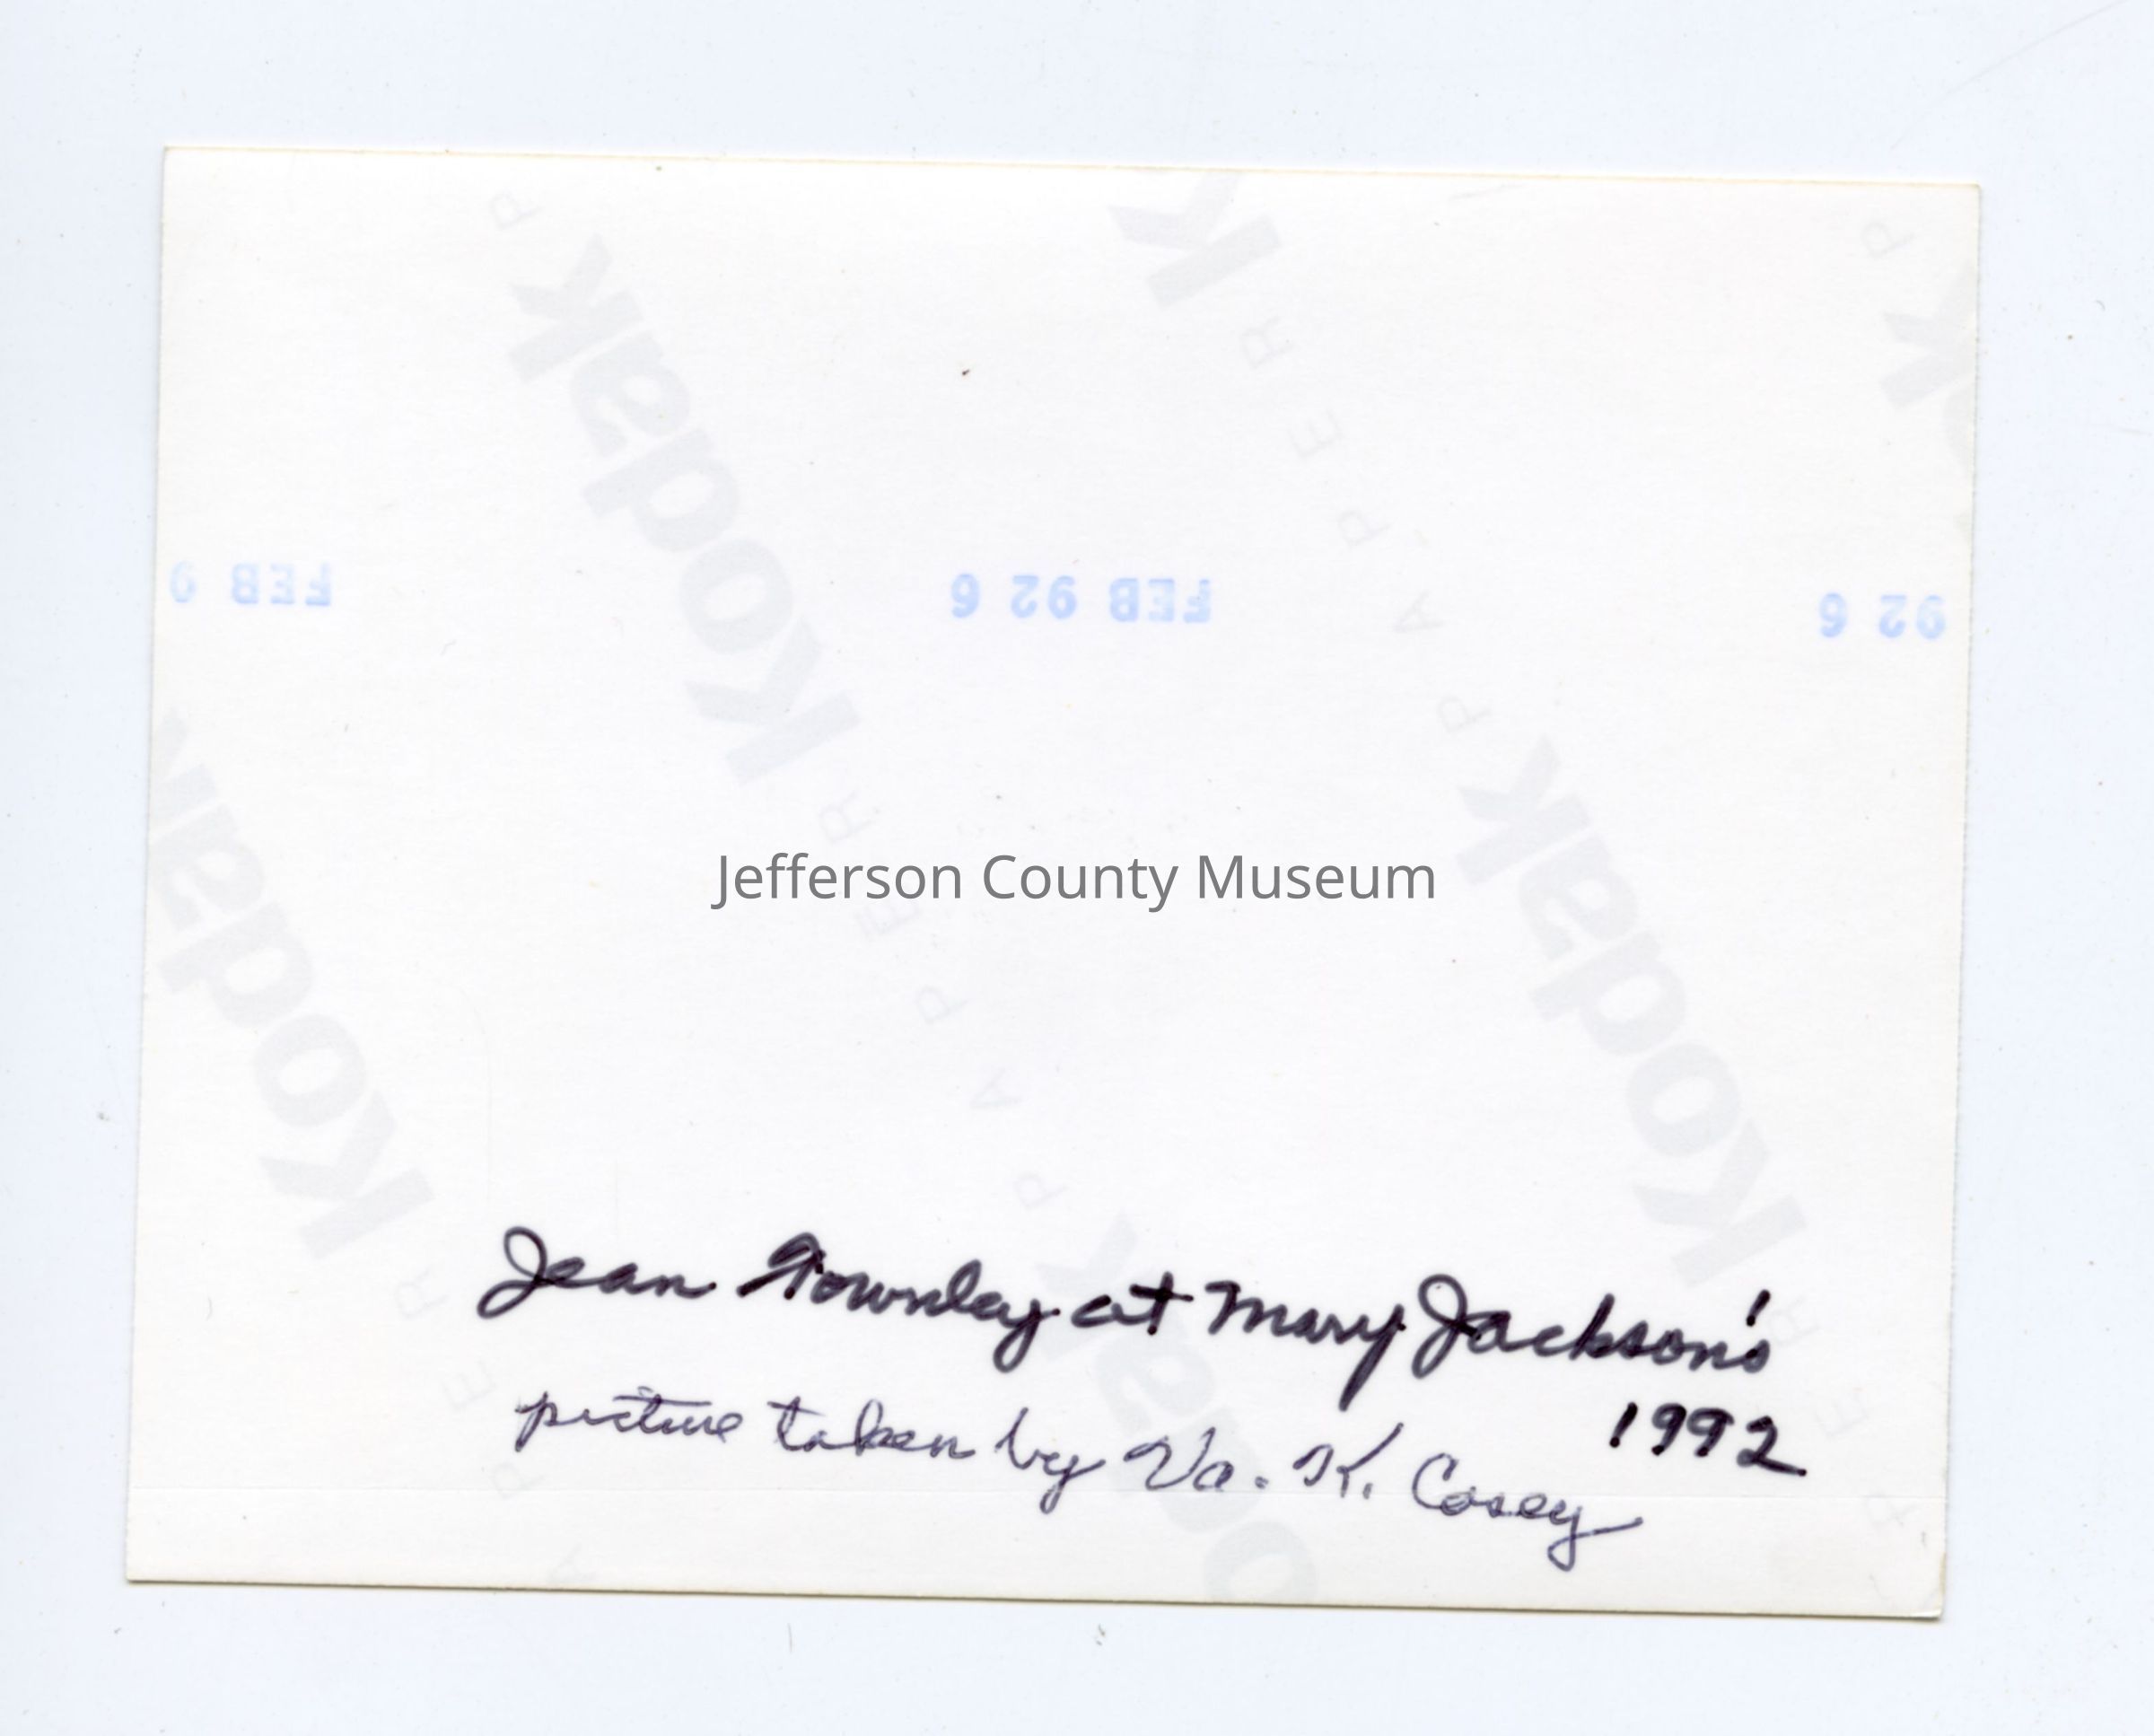 FEB 9
FEB 92 6
92 6
Kodak
PAPER
Kodak
PAPER
Kodak
PAPER
Kodak
Jefferson County Museum
Jean Townley at Mary Jackson's
1992
picture taken by Va. K. Casey